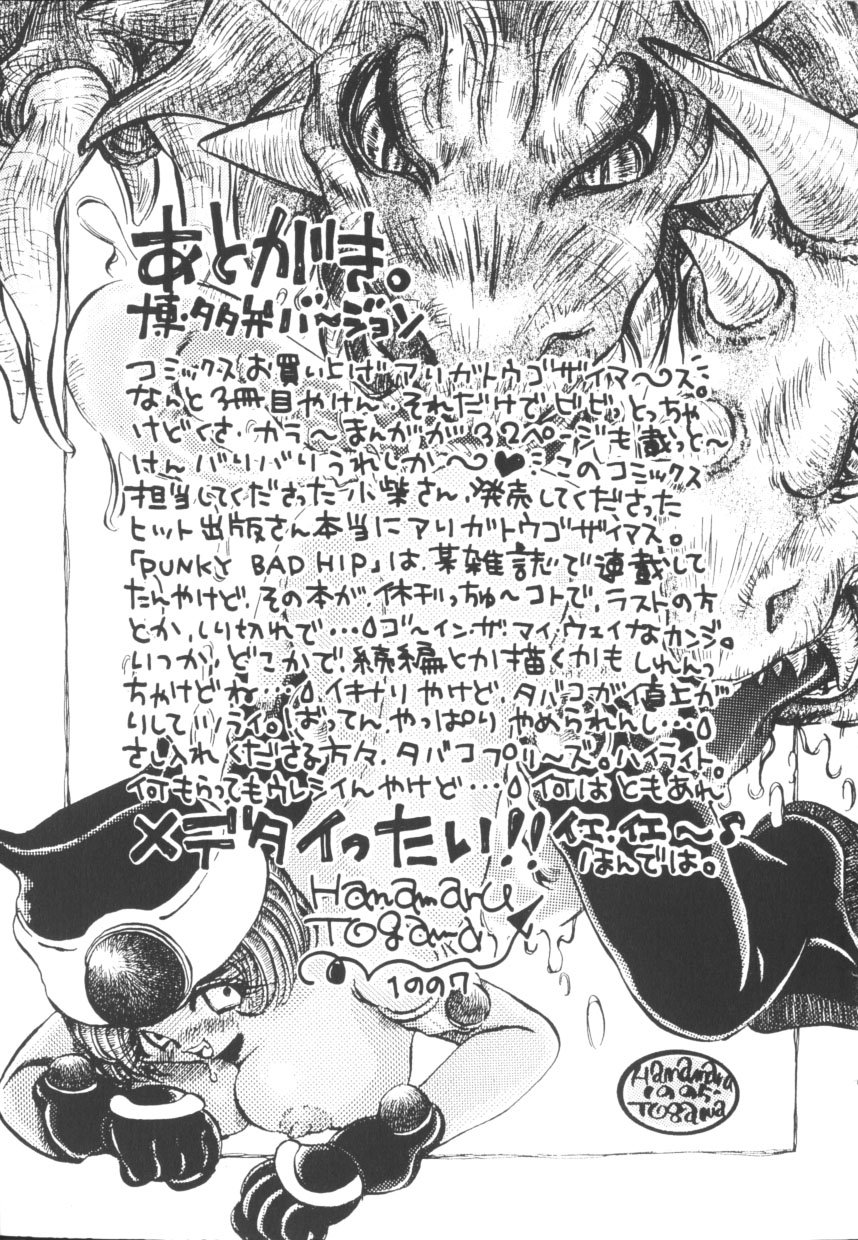 あとがき。
博・タタ弁バ〜ジョン
コミックスお買い上げアリガトウゴザイマ〜ス。
なんと3冊目やけん、それだけでビビっとっちゃ
けどくさ、カラ〜まんがが32ページも載っと〜
けんバリバリうれしか〜♥このコミックス
担当してくださった小柴さん、発売してくださった
ヒット出版さん本当にアリガトウゴザイマス。
「PUNKY BAD HIP」は、某雑誌で連載して
たんやけど、その本が、休刊っちゅ〜コトで、ラストの方
とか、しり切れで…ゴ〜イン・ザ・マイ・ウェイなカンジ。
いつか、どこかで、続編とか描くかもしれんっ
ちゃけどね…イキナリやけど、タバコが値上が
りしてツライ。ばってん、やっぱりやめられんし…
さし入れくださる方々、タバコプリ〜ズ。ハイライト。
何もらってもウレシイんやけど…何はともあれ
メデタイったい!!イエ・イエ〜♪
ほんでは。
Hanamaru
TOgama
1997
Hanamaru
TOgama